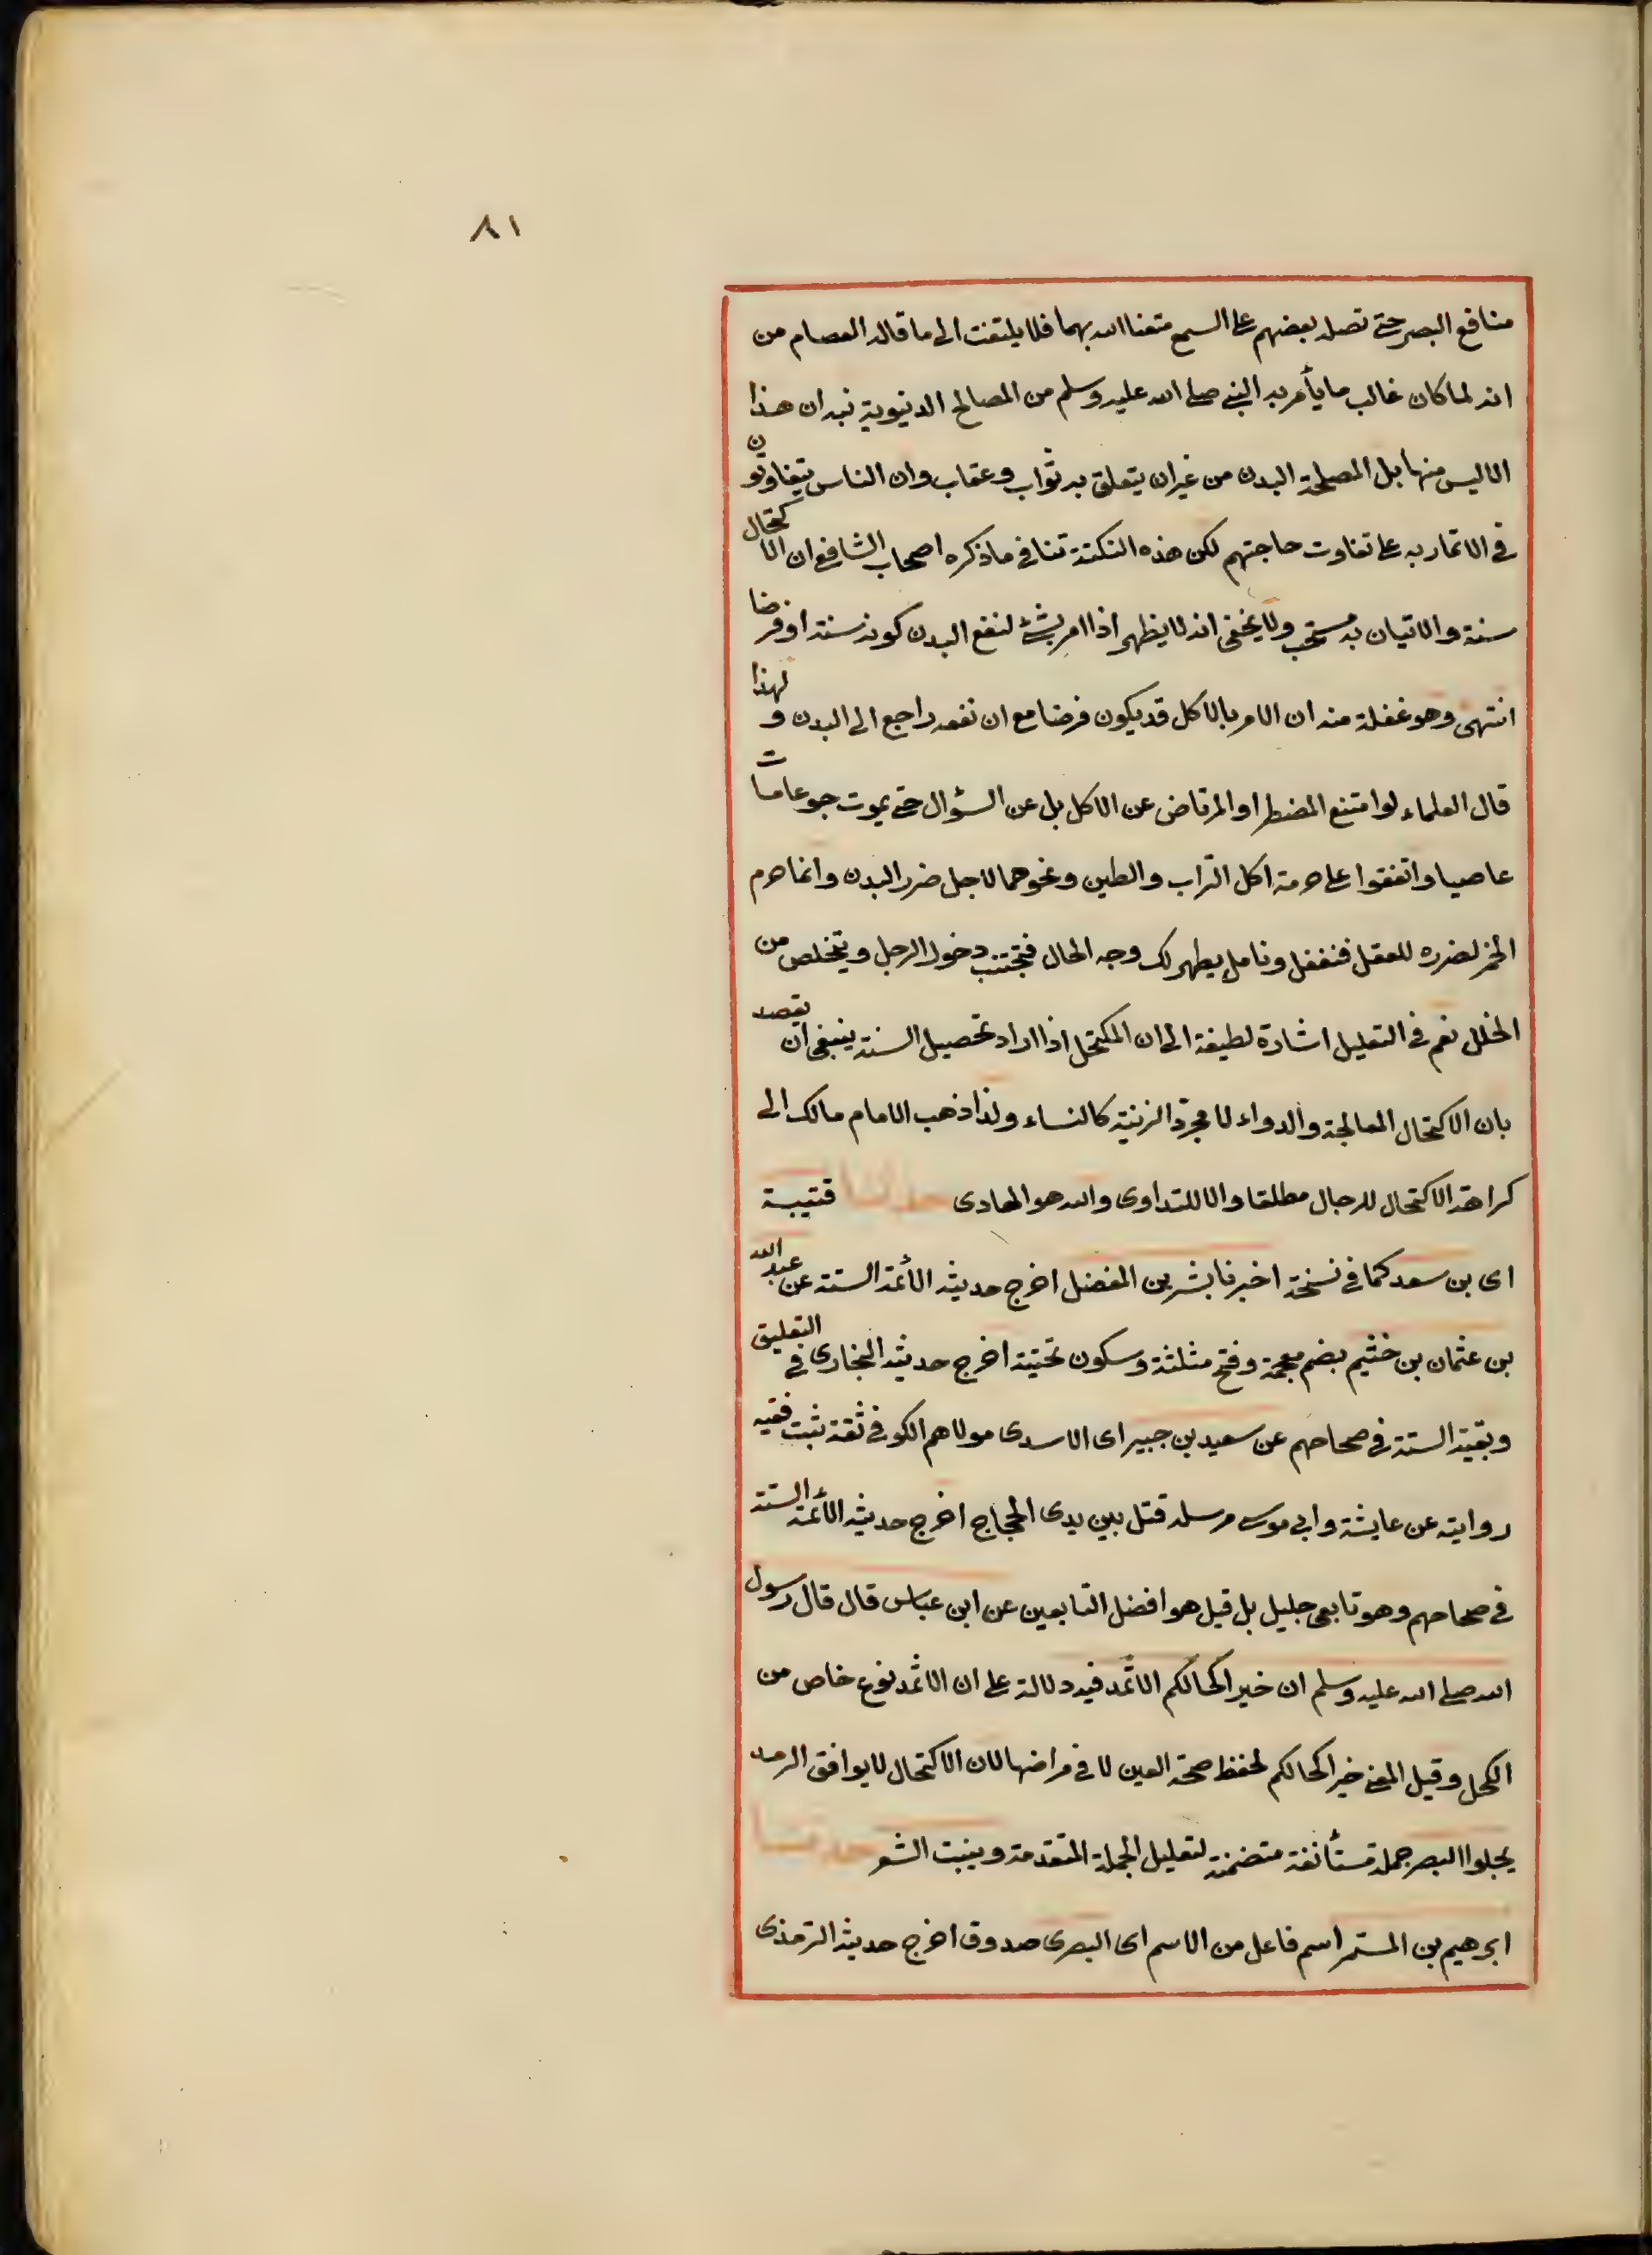 ٨١
منافع البصر حتى تصله بعضهم على السمع متعنا الله بهما فلا يلتفت الى ما قاله العصام من
انه لما كان غالب ما يأمر به النبي صلى الله عليه وسلم من المصالح الدنيوية نبه ان هذا
الا ليس منها بل المصلحة البدن من غير ان يتعلق به ثواب وعقاب وان الناس يتفاوتون
في الاتمار به على تفاوت حاجتهم لكن هذه النكتة تنافي ما ذكره اصحاب الشافعي ان الاكتحال
سنة والاتيان به مستحب ولا يخفى انه لا يظهر اذا امر بشئ لنفع البدن كونه سنة او فرضا
انتهى وهو غفلة منه ان الامر بالاكل قد يكون فرضا مع ان نفعه راجع الى البدن ولهذا
قال العلماء لو امتنع المضطر او المرتاض عن الاكل بل عن السؤال حتى يموت جوعا مات
عاصيا واتفقوا على حرمة اكل التراب والطين ونحوهما لاجل ضرر البدن وانما حرم
الخمر لضرره للعقل فتغفل وتامل يظهر لك وجه الحال فتجتنب دخول الرجل ويتخلص من
الخلل نعم في التعليل اشارة لطيفة الى ان المكتحل اذا اراد تحصيل السنة ينبغي ان يقصد
بان الاكتحال المعالجة والدواء لا مجرد الزينة كالنساء ولذا ذهب الامام مالك الى
كراهة الاكتحال للرجال مطلقا والا للتداوى والله هو الهادى حدثنا قتيبة
اى بن سعد كما في نسخة اخبرنا بشر بن المفضل اخرج حديثه الأئمة الستة عن عبد الله
بن عثمان بن خثيم بضم معجمة وفتح مثلثة وسكون تحتية اخرج حديثه البخارى في التعليق
وبقية الستة في صحاحهم عن سعيد بن جبير اى الاسدى مولاهم الكوفي ثقة ثبت فقيه
روايته عن عايشة وابى موسى مرسلة قتل بين يدى الحجاج اخرج حديثه الأئمة الستة
في صحاحهم وهو تابعى جليل بل قيل هو افضل التابعين عن ابن عباس قال قال رسول
الله صلى الله عليه وسلم ان خير اكحالكم الاثمد فيه دلالة على ان الاثمد نوع خاص من
الكحل وقيل المعنى خير اكحالكم لحفظ صحة العين لا في مراضها لان الاكتحال لا يوافق الرمد
يجلوا البصر جملة مستأنفة متضمنة لتعليل الجملة المتقدمة وينبت الشعر حدثنا
ابرهيم بن المستمر اسم فاعل من الاسم اى البصرى صدوق اخرج حديثه الترمذى